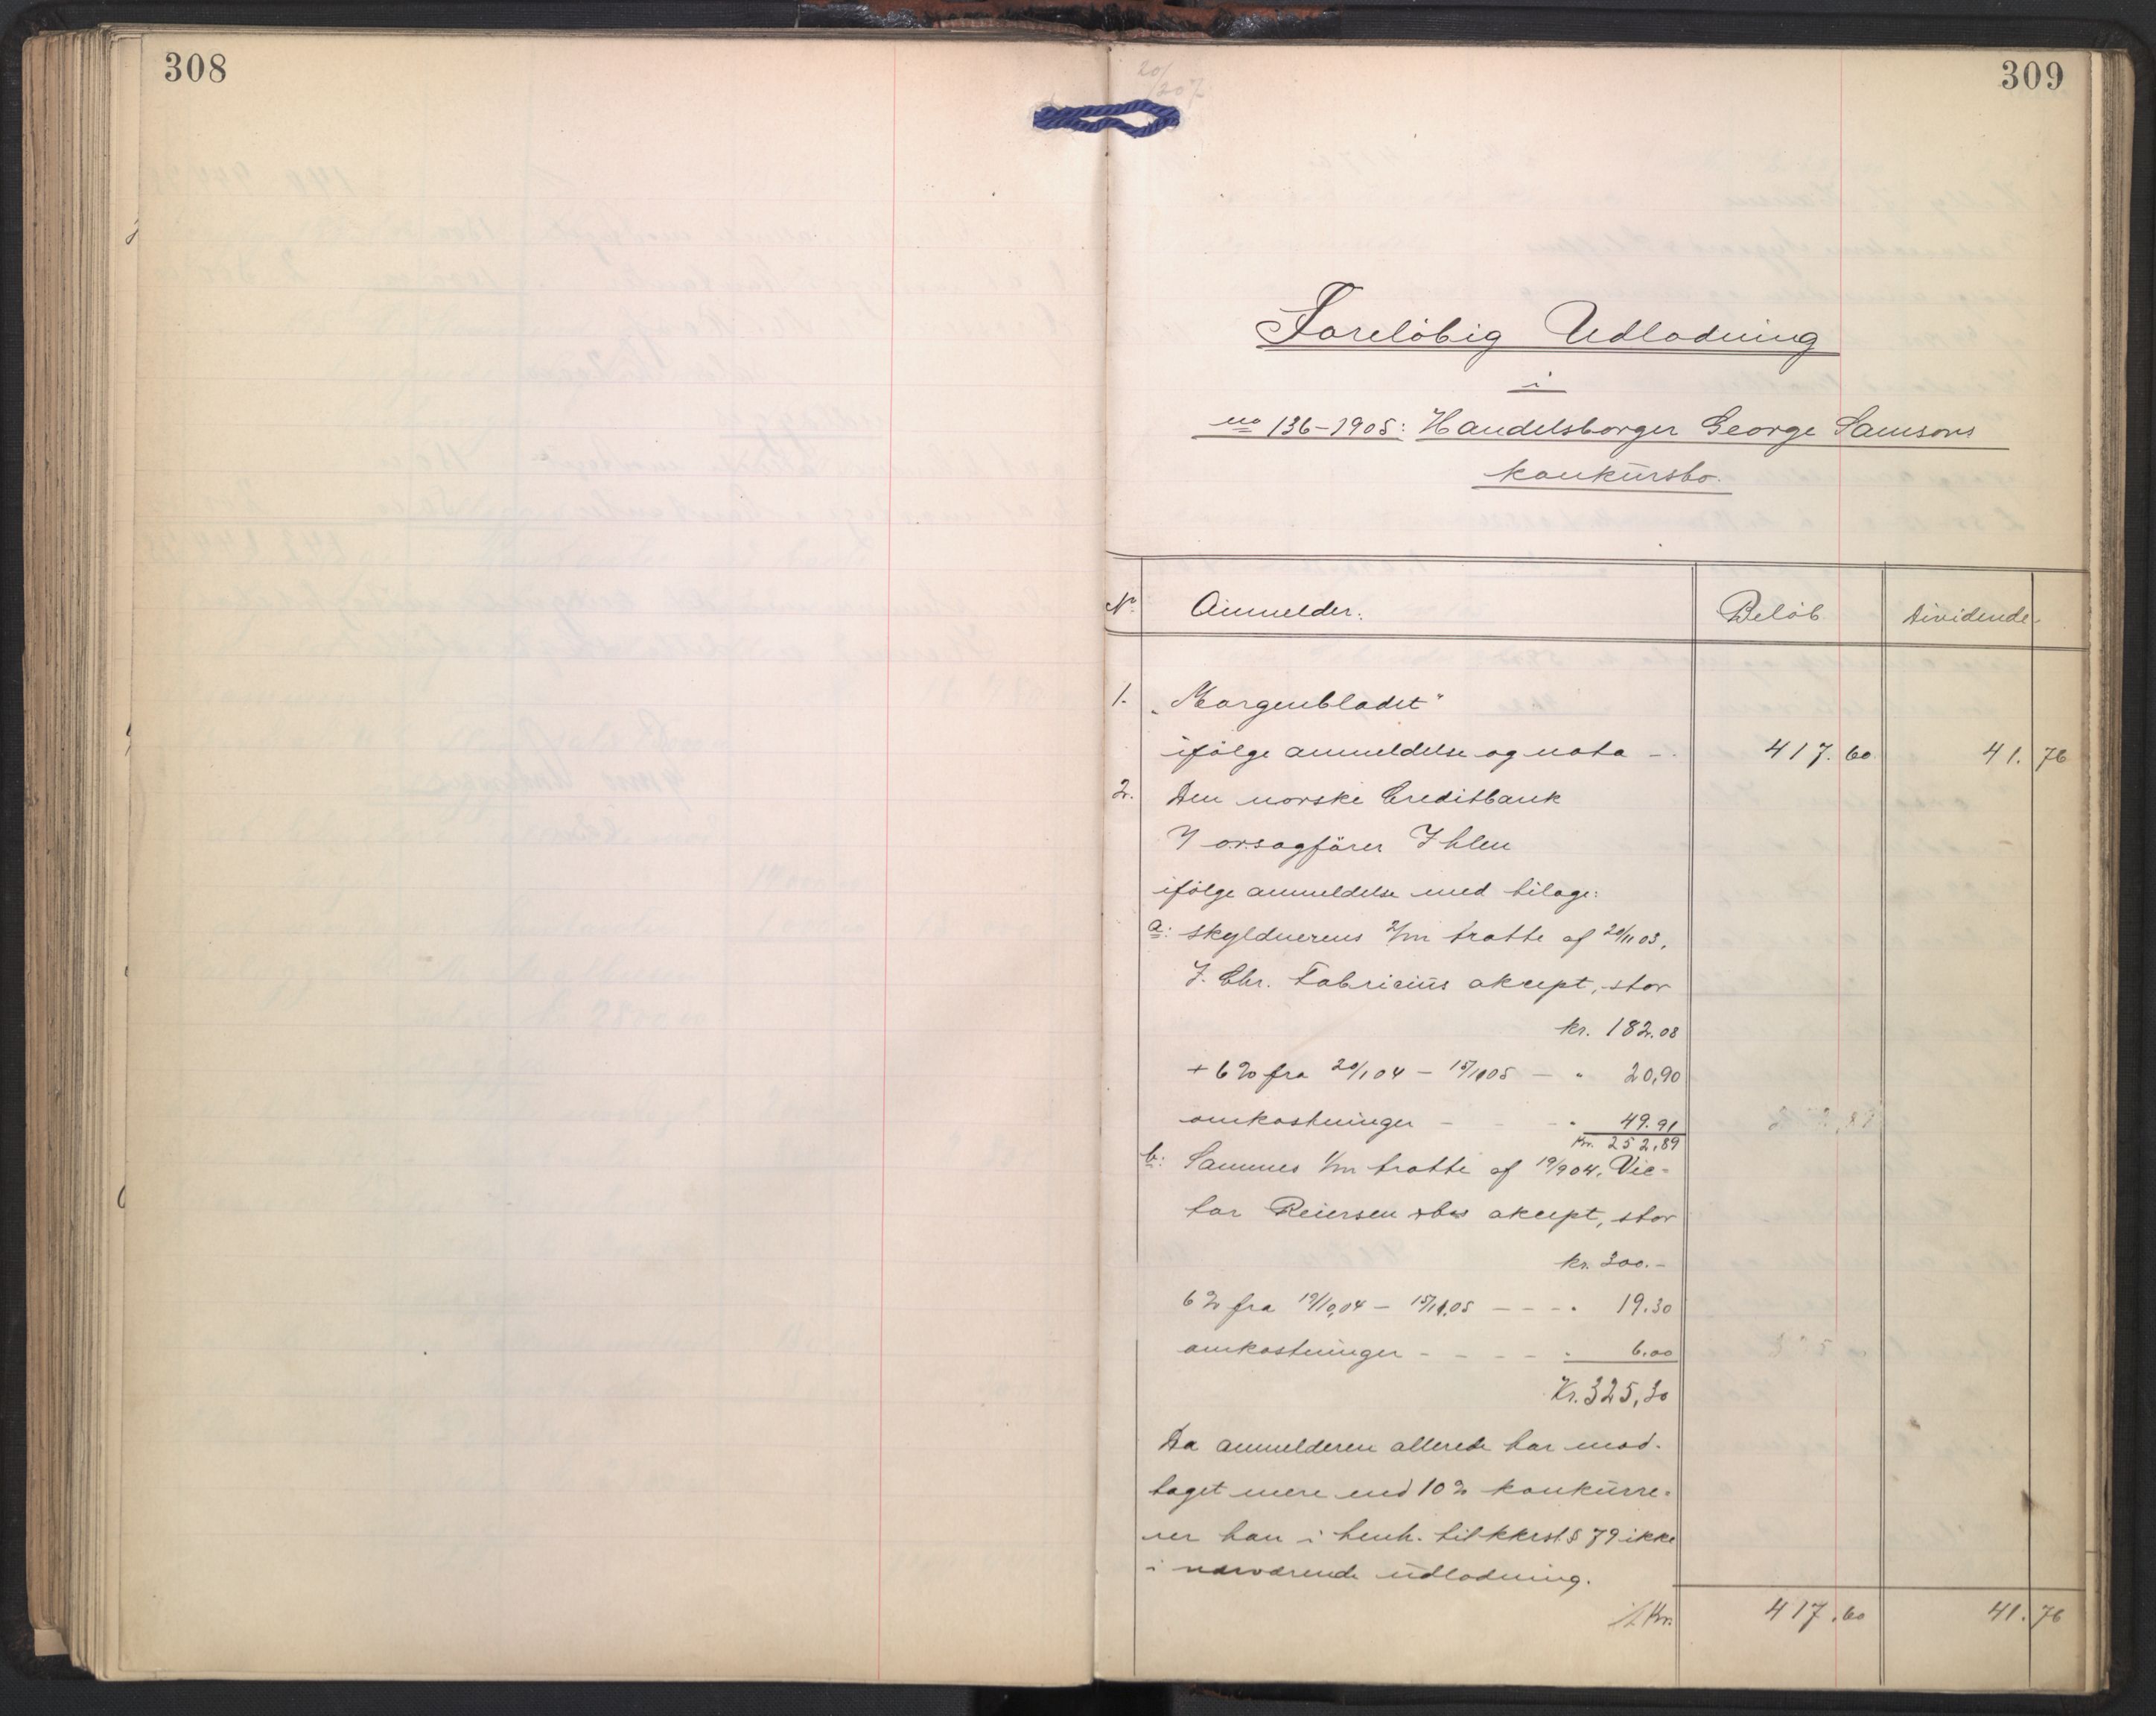 308
309
20/
207
Foreløbig Udlodning
i
no 136-1905: Handelsborger George Samsons
konkursbo.
No Anmelder: Beløb Dividende
1. „Morgenbladet"
ifølge anmeldelse og nota - 417.60 41.76
2. Den norske Creditbank
v/ o.r.sagfører Ihlen
ifølge anmeldelse med bilage:
a: skyldnerens 2/m tratte af 20/11 03,
J. Chr. Fabricius aksept, stor
kr. 182.08
+ 6% fra 20/1 04 - 15/1205 - " 20,90
omkostninger - - - " 49.91
Kr. 252,89
b: Sammes 1/m tratte af 19/9 04, Vic-
tor Reiersen aksept, stor
kr. 300.-
6% fra 19/10.04 - 15/11.05 - - - " 19.30
omkostninger - - - - " 6.00
Kr. 325,30
Da anmelderen allerede har mod-
taget mere end 10% konkurre-
rer han i henh. til kkrsl. § 79 ikke
i nærværende udlodning.
Kr. 417.60 41.76